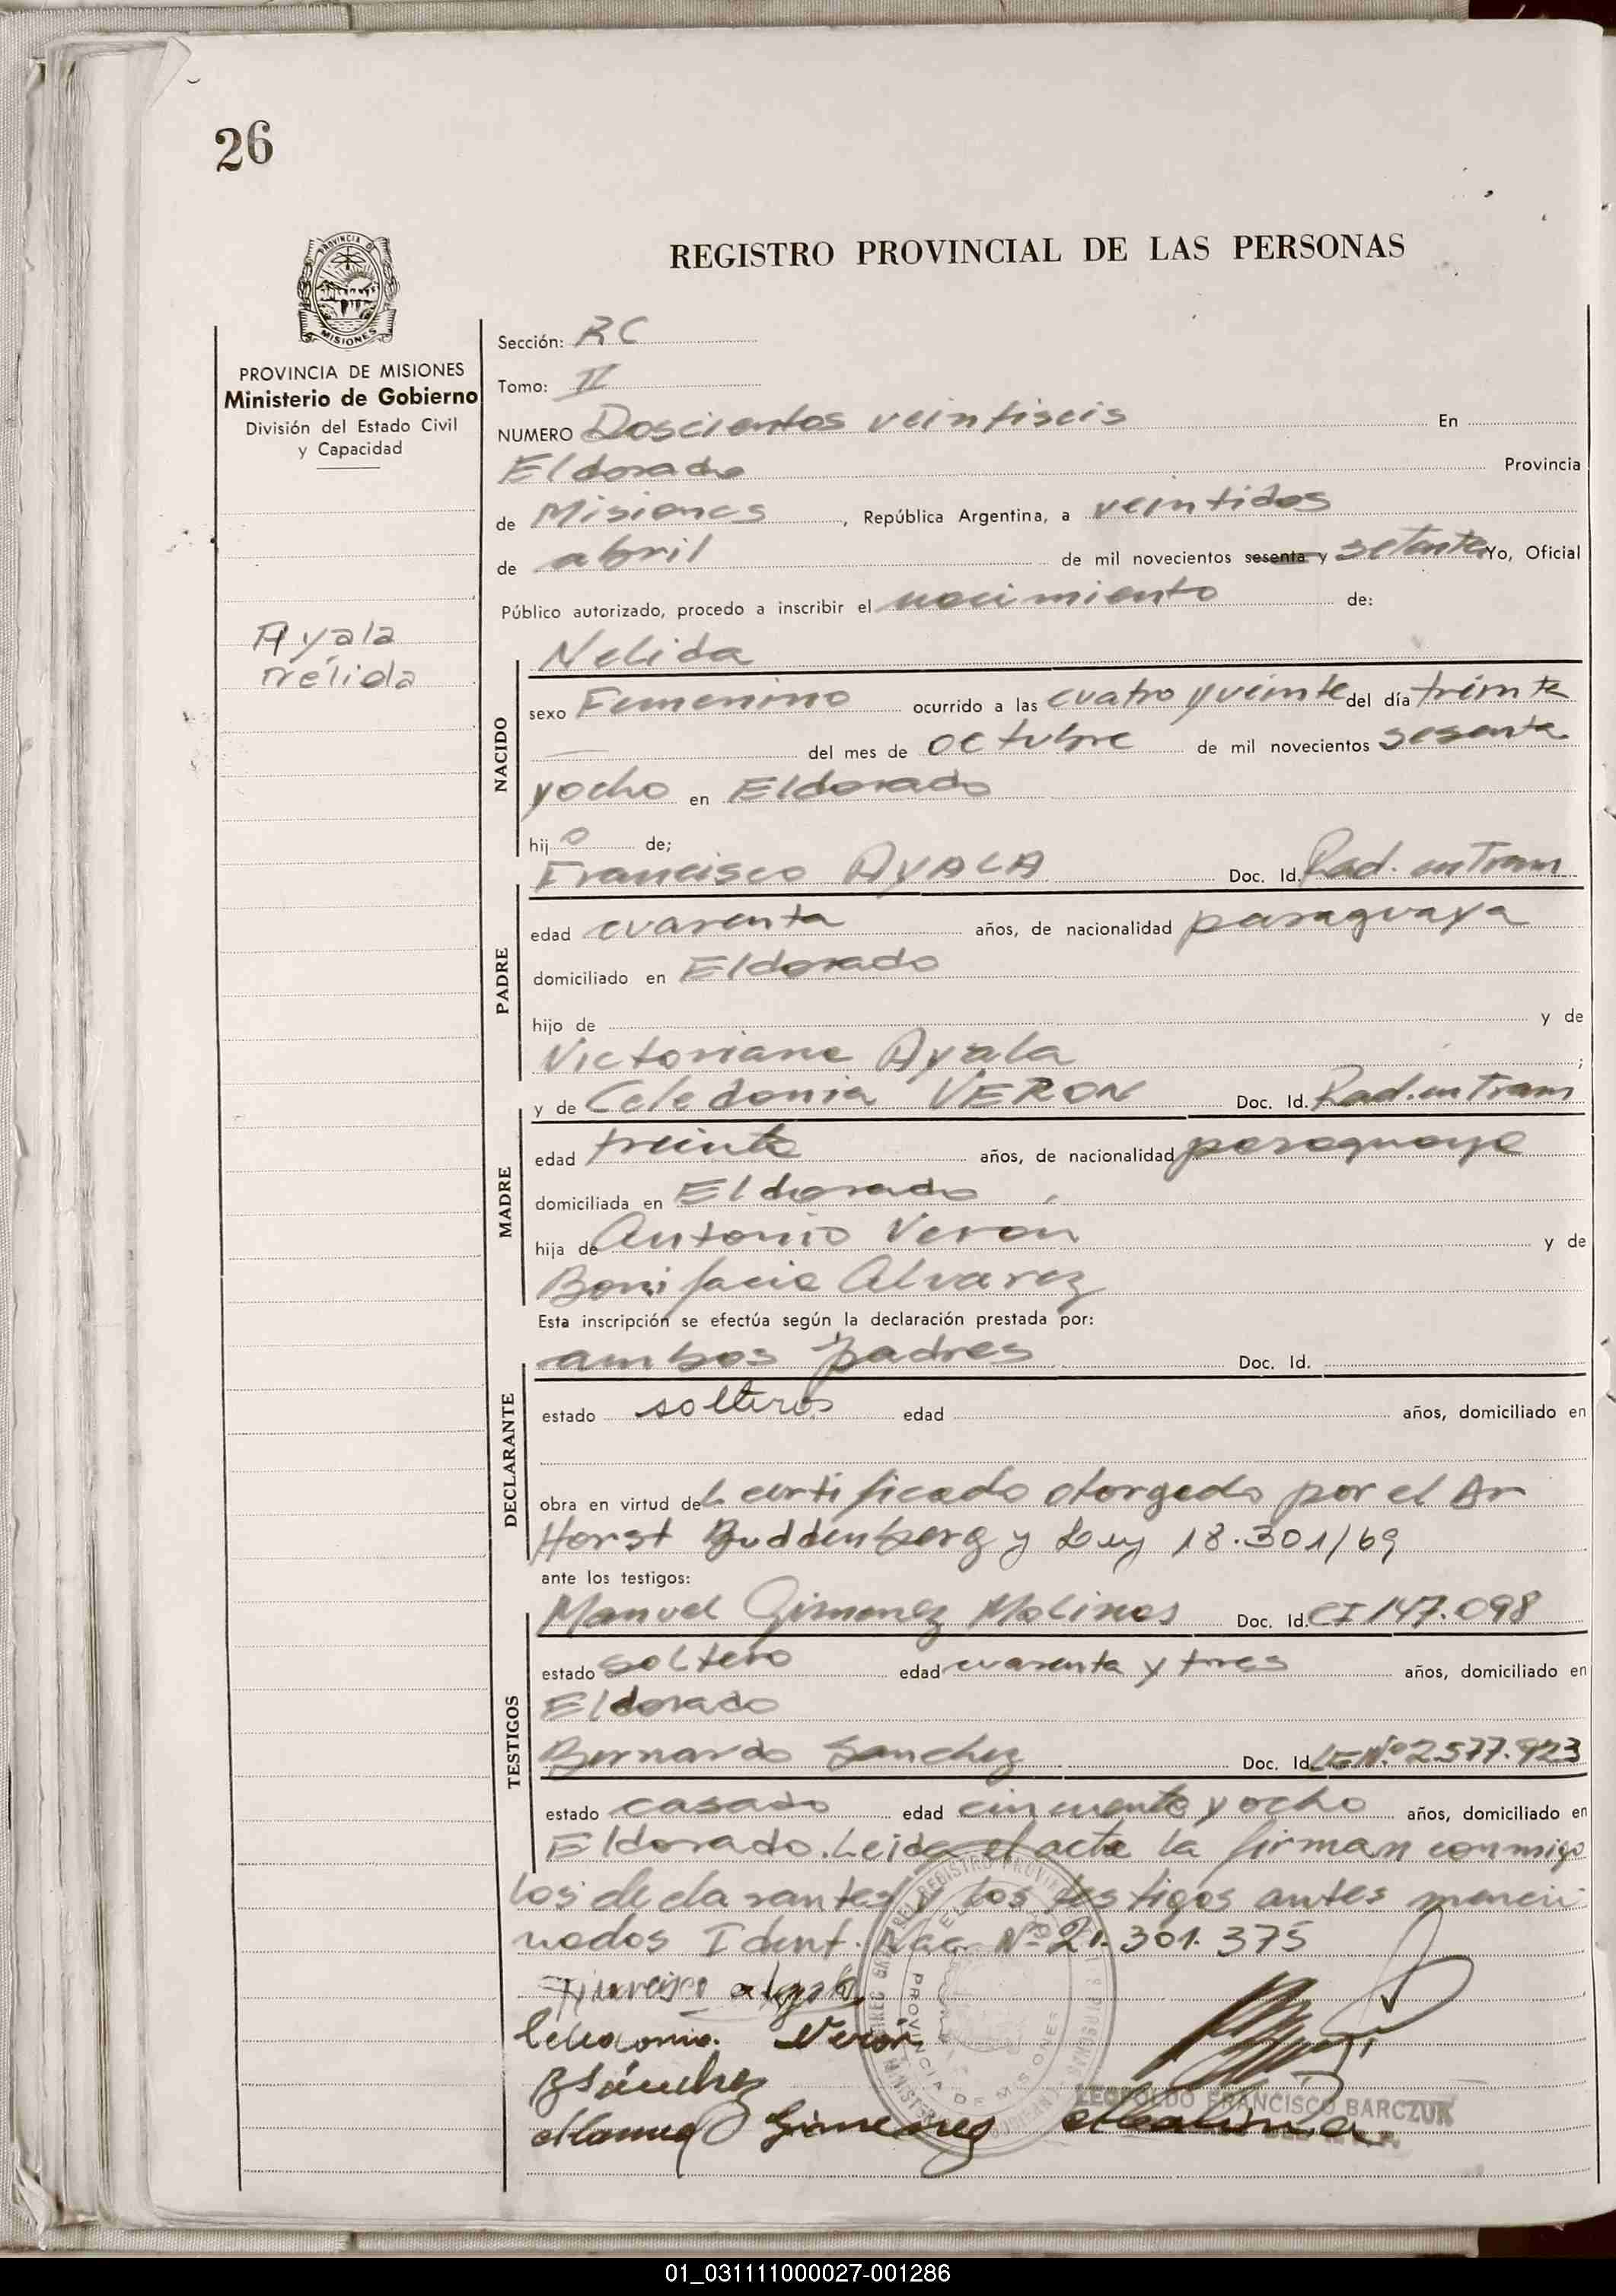 26
PROVINCIA DE
MISIONES
PROVINCIA DE MISIONES
Ministerio de Gobierno
División del Estado Civil
y Capacidad
Ayala
Nélida
REGISTRO PROVINCIAL DE LAS PERSONAS
Sección: RC
Tomo: II
NUMERO Doscientos veintiseis En
Eldorado Provincia
de Misiones, República Argentina, a veintidos
de abril de mil novecientos sesenta y setenta Yo, Oficial
Público autorizado, procedo a inscribir el nacimiento de:
Nelida
NACIDO
sexo Femenino ocurrido a las cuatro y veinte del día treinta
del mes de octubre de mil novecientos sesenta
y ocho en Eldorado
hijo de;
Francisco AYALA Doc. Id. Rad. en Tram
PADRE
edad cuarenta años, de nacionalidad paraguaya
domiciliado en Eldorado
hijo de y de
Victoriana Ayala ;
y de Celedonia VERON Doc. Id. Rad. en Tram
MADRE
edad treinta años, de nacionalidad paraguaya
domiciliada en Eldorado
hija de Antonio Veron y de
Bonifacia Alvarez
Esta inscripción se efectúa según la declaración prestada por:
ambos padres Doc. Id.
DECLARANTE
estado solteros edad años, domiciliado en
obra en virtud del certificado otorgado por el Dr
Horst Buddenberg y Ley 18.301/69
ante los testigos:
Manuel Gimenez Molinas Doc. Id. CI 147.098
TESTIGOS
estado soltero edad cuarenta y tres años, domiciliado en
Eldorado
Bernardo Sanchez Doc. Id. LE Nº 2.577.923
estado casado edad cincuenta y ocho años, domiciliado en
Eldorado. Leida el acta la firman conmigo
los declarantes y los testigos antes mencio
nados Ident. Nac. Nº 21.301.375
Francisco ayala
Celedonia Veron
B Sánchez
Manuel Gimenez Molinas
PROVINCIA DE MISIONES
LEOPOLDO FRANCISCO BARCZUK
01_031111000027-001286